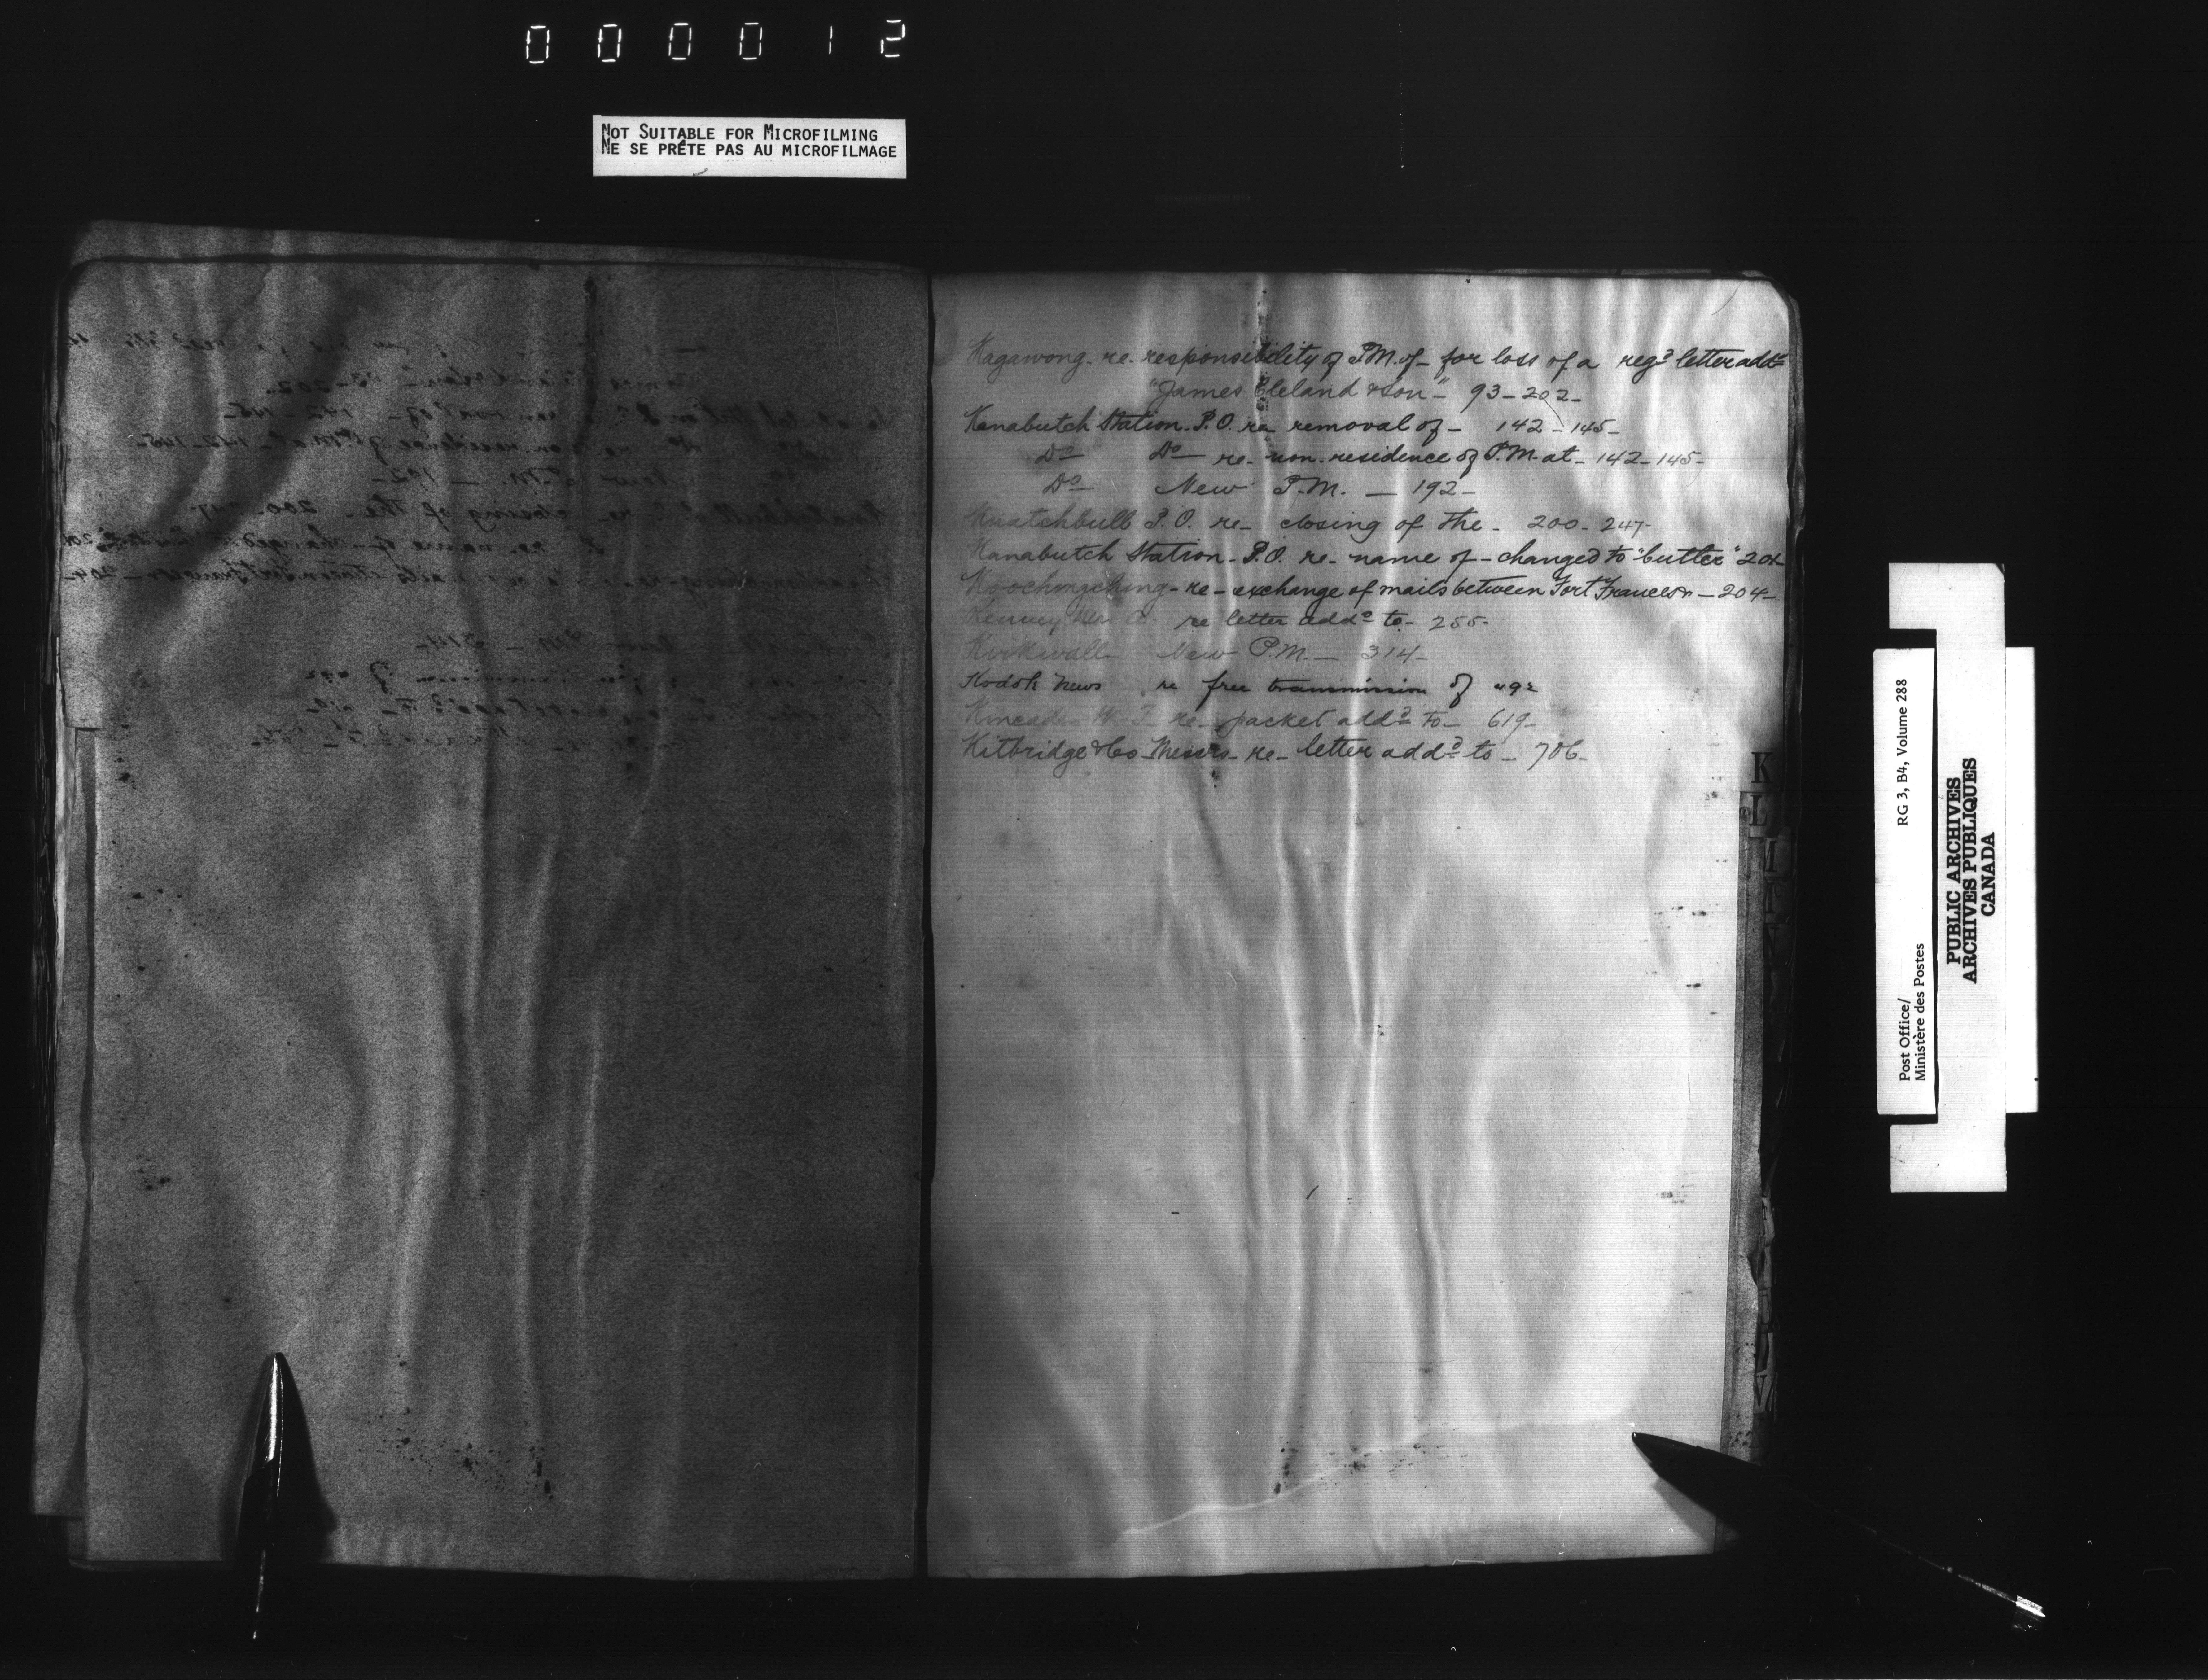 000012
NOT SUITABLE FOR MICROFILMING
NE SE PRÊTE PAS AU MICROFILMAGE
Kagawong. re. responsibility of P.M. of - for loss of a regd letter addd
"James Cleland & Son" - 93 - 202 -
Kanabutch Station. P.O. re removal of - 142 - 145 -
Do Do re. non. residence of P.M. at - 142 - 145 -
Do New P.M. - 192 -
Knatchbull P.O. re - closing of the - 200 - 247 -
Kanabutch Station - P.O. re - name of - changed to "butler" 201
Koochingching - re - exchange of mails between Fort Frances - 204 -
Kenney re letter addd to - 255 -
Kirkwall New P.M. - 314 -
Kodok News re free transmission of
Kincade W. F. re - packet addd to - 619 -
Kitbridge & Co Messrs - re - letter addd to - 706 -
K
L
M
N
W
Post Office/
Ministère des Postes
RG 3, B4, Volume 288
PUBLIC ARCHIVES
ARCHIVES PUBLIQUES
CANADA